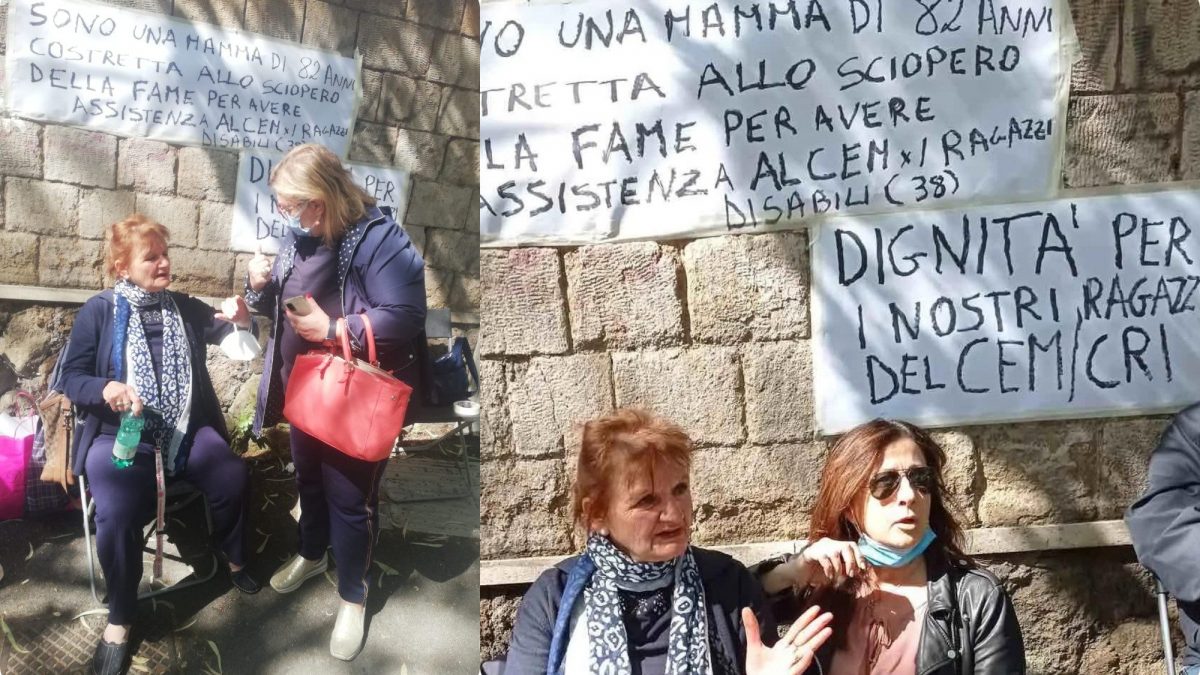 SONO UNA MAMMA DI 82 ANNI
COSTRETTA ALLO SCIOPERO
DELLA FAME PER AVERE
ASSISTENZA AL CEM x I RAGAZZI
DISABILI (38)
DI PER
I N
DEL
UNA MAMMA DI 82 ANNI
TRETTA ALLO SCIOPERO
LA FAME PER AVERE
ASSISTENZA AL CEM x I RAGAZZI
DISABILI (38)
DIGNITA' PER
I NOSTRI RAGAZZI
DEL CEM/CRI